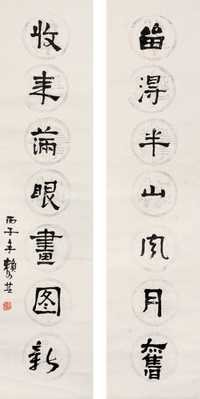 留得半山风月舊
收来滿眼畫图新
丙子年 賴少其